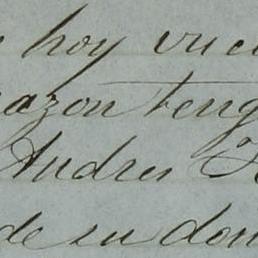 hoy
razon teng
Andres
de su don